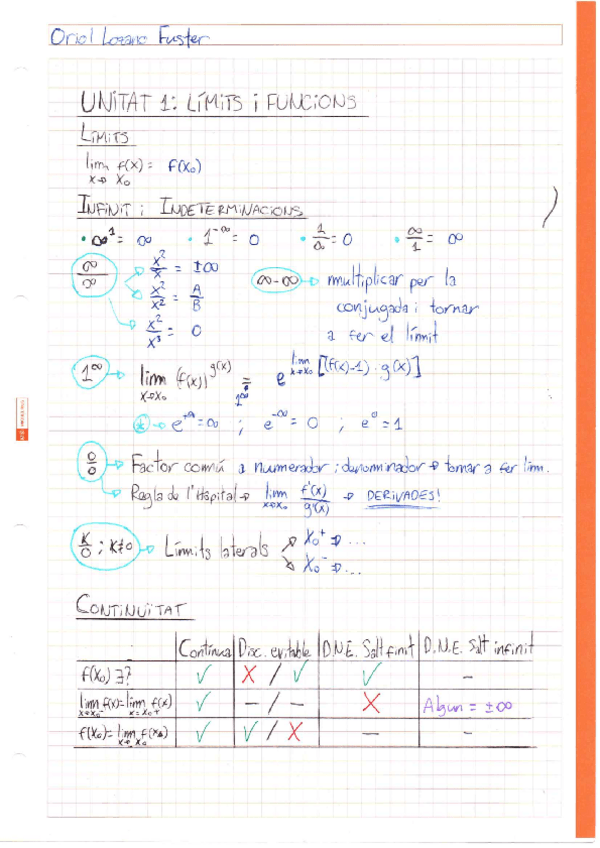 Oriol Lozano Fuster
UNITAT 1: LÍMITS I FUNCIONS
LÍMITS
lim f(x) = f(x₀)
x→x₀
INFINIT i INDETERMINACIONS
• ∞¹ = ∞ • 1^-∞ = 0 • 1/∞ = 0 • ∞/1 = ∞
∞/∞ → x²/x = ±∞
x²/x² = A/B
x²/x³ = 0
∞-∞ → multiplicar per la
conjugada i tornar
a fer el límit
1^∞ → lim (f(x))^g(x) = e^lim x→x₀ [(f(x)-1)·g(x)]
x→x₀ 1^∞
* → e^+∞ = ∞ ; e^-∞ = 0 ; e⁰ = 1
0/0 → Factor comú a numerador i denominador → tornar a fer lim.
→ Regla de l'Hôpital → lim x→x₀ f'(x)/g'(x) → DERIVADES!
K/0 ; K≠0 → Límits laterals → x₀⁺ ⇒ ...
→ x₀⁻ ⇒ ...
CONTINUÏTAT
Contínua Disc. evitable D.N.E. Salt finit D.N.E. Salt infinit
f(x₀) ∃? ✓ X / ✓ ✓ –
lim x→x₀⁻ f(x) = lim x→x₀⁺ f(x) ✓ – / – X Algun = ±∞
f(x₀) = lim x→x₀ f(x₀) ✓ ✓ / X – –